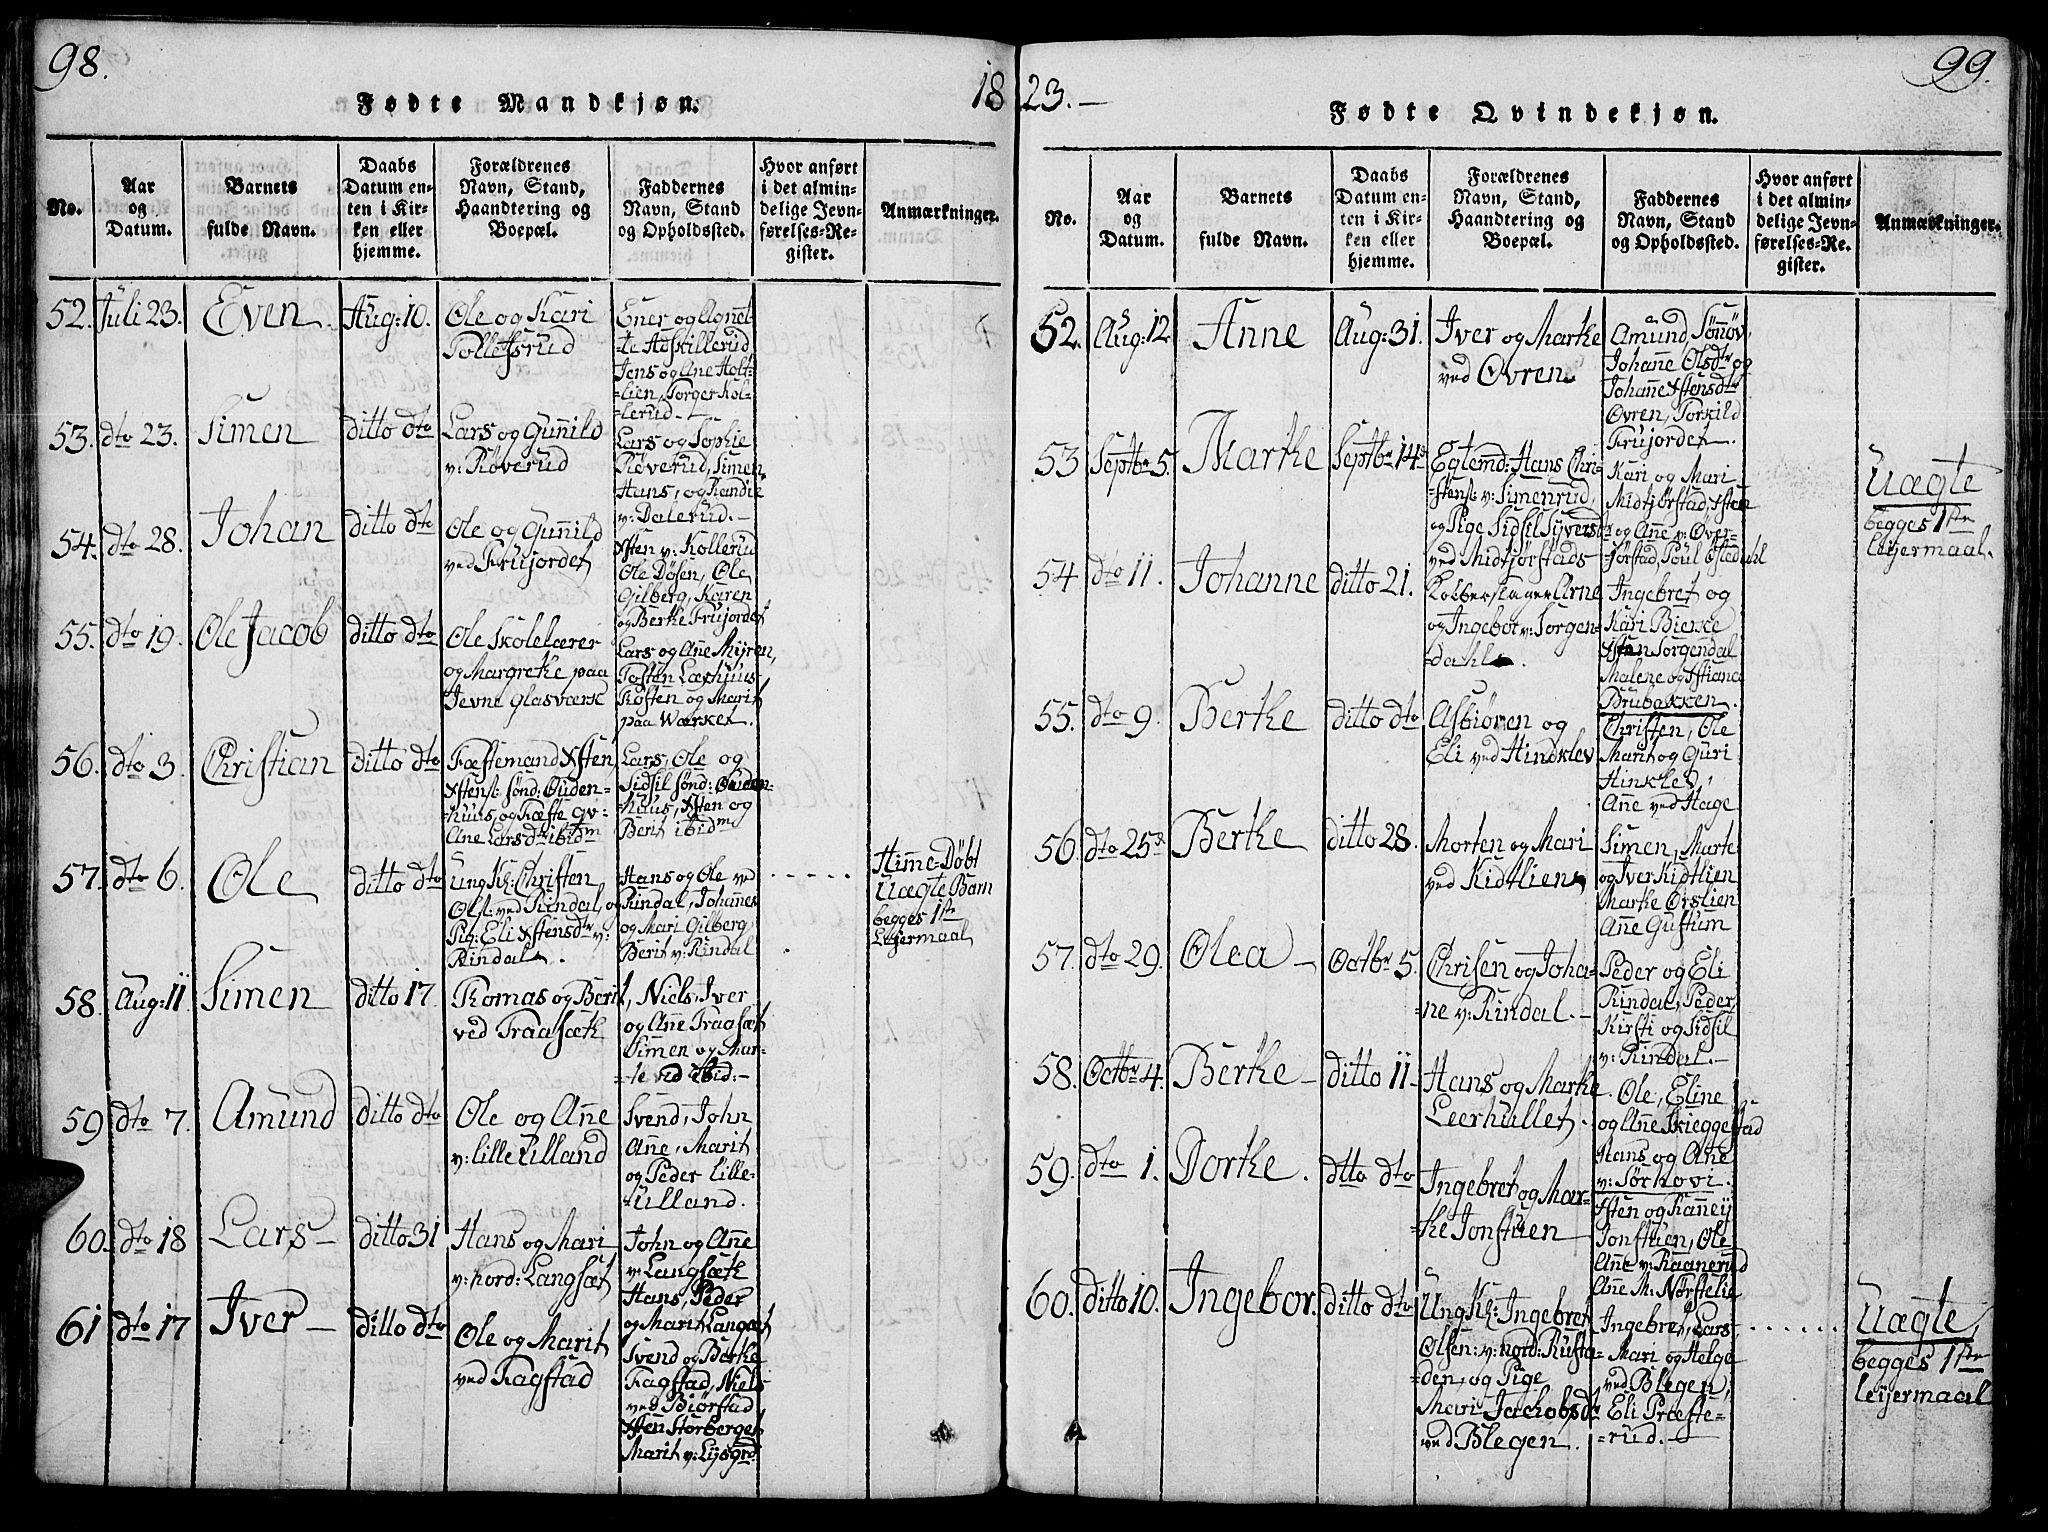 98.
Fødte Mandkjøn.
18
No.
Aar
og
Datum.
Barnets
fulde Navn.
Daabs
Datum en-
ten i Kir-
ken eller
hjemme.
Forældrenes
Navn, Stand,
Haandtering og
Boepæl.
Faddernes
Navn, Stand
og Opholdssted.
Hvor anført
i det almin-
delige Jevn-
førelses-Re-
gister.
Anmærkninger.
52. Juli 23. Even. Aug: 10.
Ole og Kari
Tollefsrud
Ener og Agnet-
-te Hoskillerud
Jens og Ane Holt-
-lien, Torger Kol-
-lerud.
53. dto 23. Simen ditto dto
Lars og Gunild
v: Røverud
Lars og Sophie
Røverud, Simen
Hans, og Randie
v: Dalerud.
54. dto 28. Johan ditto dto
Ole og Gunild
ved Frujordet
Xsten v: Kollerud
Ole Døsen, Ole
Gilberg, Karen
og Berthe Frujordet
55. dto 19. Ole Jacob ditto dto
Ole Skolelærer
og Margrethe paa
Jevne Glasværk
Lars og Ane Myren,
Tosten Lækhuus
Kosten og Marit
paa Værket.
56. dto 3. Christian ditto dto
Fæstemand Xsten
Xstens: sønd: Ouden-
-huus, og Fæste qv-
Ane Larsdtr ibidm
Lars, Ole og
Sidsil sønd: Ouden-
-huus, Xsten og
Berit ibidm
57. dto 6. Ole ditto dto
Ung K: Christen
Ols: ved Rindal, og
Pig: Eli Xstensdtr v:
Rindal.
Hans og Ole ved
Rindal, Johanes
og Mari Gilberg
Berit v: Rindal
Hime-Døbt
Uægte Barn
begges 1ste
Leyermaal
58. Aug: 11 Simen ditto 17
Thomas og Berit
ved Traasæth
Niels, Iver
og Ane Traasæt
Simen og Mar-
-te ved ibid:
59 dto 7. Amund ditto dto
Ole og Ane
v: lille Ulland
Svend, John
Ane, Marit
og Peder lille-
-ulland.
60. dto 18 Lars ditto 31
Hans og Mari
v: nord: Langsæt
John og Ane
v: Langsæth
Hans, Peder
og Marit Langsæt
61 dto 17 Iver ditto dto
Ole og Marit
ved Fagstad
Svend og Berthe
Fagstad, Niels
ved Biørstad
Xsten Storberget
Marit v: Lysgrd
23.
99.
Fødte Qvindekjøn.
No.
Aar
og
Datum.
Barnets
fulde Navn.
Daabs
Datum en-
ten i Kir-
ken eller
hjemme.
Forældrenes
Navn, Stand,
Haandtering og
Boepæl.
Faddernes
Navn, Stand
og Opholdssted.
Hvor anført
i det almin-
delige Jevn-
førelses-Re-
gister.
Anmærkninger.
52. Aug: 12 Anne Aug: 31.
Iver og Marthe
ved Øvren
Amund, Sønøv,
Johane Olsdtr og
Johane Xstensdtr
Øvren, Torkild
Frujordet.
53 Septbr 5. Marthe Septbr 14
Egtemd: Hans Chri-
-stens: v: Simenrud,
og Pige Sidsil Syversd
ved Midtjørstads
Kari og Mari
Midtjørstad, Xsten
og Ane v: Over-
Jørstad, Poul Østedahl
Uægte
begges 1ste
leyermaal.
54 dto 11. Johanne ditto 21.
Kolberslager Arne
og Ingebor v: Sorgen-
-dahl.
Ingebret og
Kari Bierke
Xsten Sorgendal
Malene og Xstiane
Brubakken.
55. dto 9. Berthe ditto dto
Asbiøren og
Eli ved Hindklev
Christen, Ole
Marit og Guri
Hinklev,
Ane ved Hage
56. dto 25 Berthe ditto 28.
Morten og Mari
ved Kidtlien
Simen, Marte
og Iver Kidtlien
Marthe Ørslien
Ane Gustum
57. dto 29. Olea Octbr 5.
Chrisen og Joha-
-ne v: Rindal.
Peder og Eli
Rindal, Peder,
Kirsti og Sidsil
v: Rindal.
58. Octbr 4. Berthe ditto 11
Hans og Marthe
Leerhullet.
Ole, Eline
og Ane Skieggestad
Hans og Ane
v: Sørhovi.
59. dto 1. Dorthe. dtto dto
Ingebret og Mar-
-the Jonstuen
Xsten og Ranney
Jonstuen, Ole
Ane v: Raanerud
Ane M: Nørstelie
60. ditto 10. Ingebor. ditto dto
Ung K: Ingebret
Olsen: v: nord: Rusta-
den, og Pige
Mari Jachobsdtr
ved Blegen.
Ingebret, Lars,
Mari og Helge
ved Blegen,
Eli Præste-
-rud.
Uægte,
begges 1ste
leyermaal